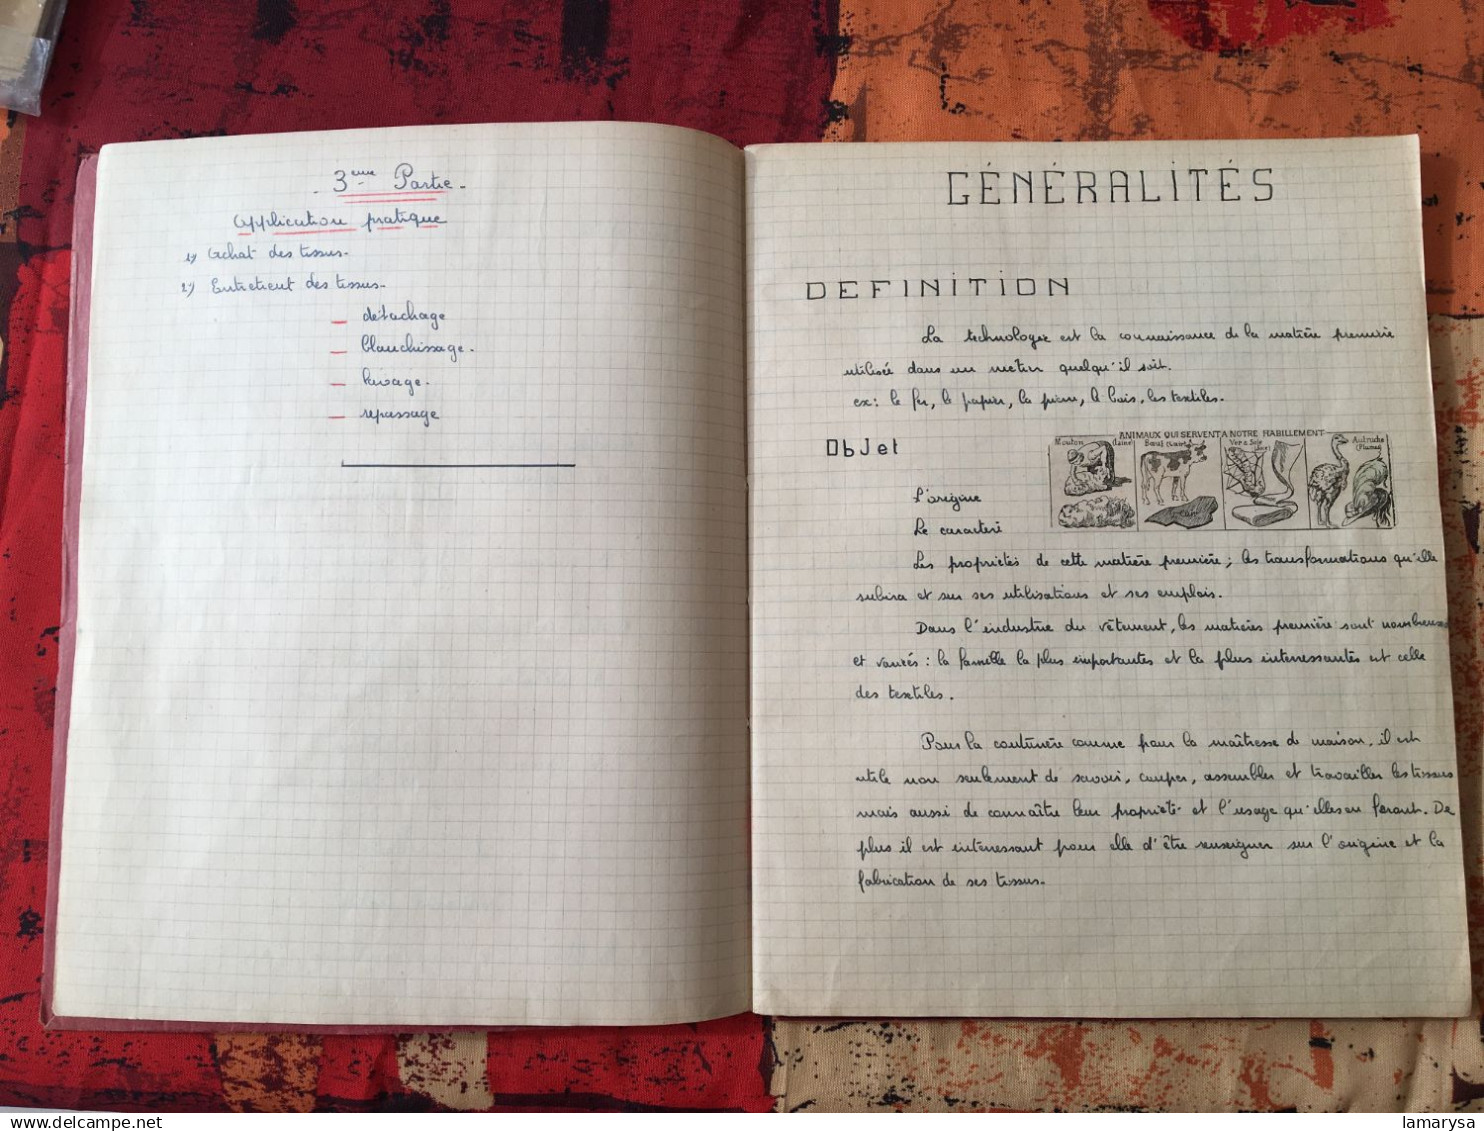 - 3ème Partie -
Application pratique
1) Achat des tissus.
2) Entretient des tissus.
— détachage
— blanchissage.
— lavage.
— repassage
GÉNÉRALITÉS
DEFINITION
La technologie est la connaissance de la matière première
utilisée dans un métier quelqu'il soit.
ex: le fer, le papier, la pierre, le bois, les textiles.
ObJet
ANIMAUX QUI SERVENT A NOTRE HABILLEMENT
Mouton (laine) Bœuf (Cuir) Ver à Soie Autruche (Plumes)
L'origine
Le caractère
Les propriétés de cette matière première; les transformations qu'elle
subira et sur ses utilisations et ses emplois.
Dans l'industrie du vêtement, les matières première sont nombreuses
et variés : la famille la plus importantes et la plus interressantes est celle
des textiles.
Pour la couturière comme pour la maîtresse de maison, il est
utile non seulement de savoir, couper, assembler et travailler les tissus
mais aussi de connaître leur propriété et l'usage qu'elles en feront. De
plus il est interressant pour elle d'être renseigner sur l'origine et la
fabrication de ses tissus.
lamarysa